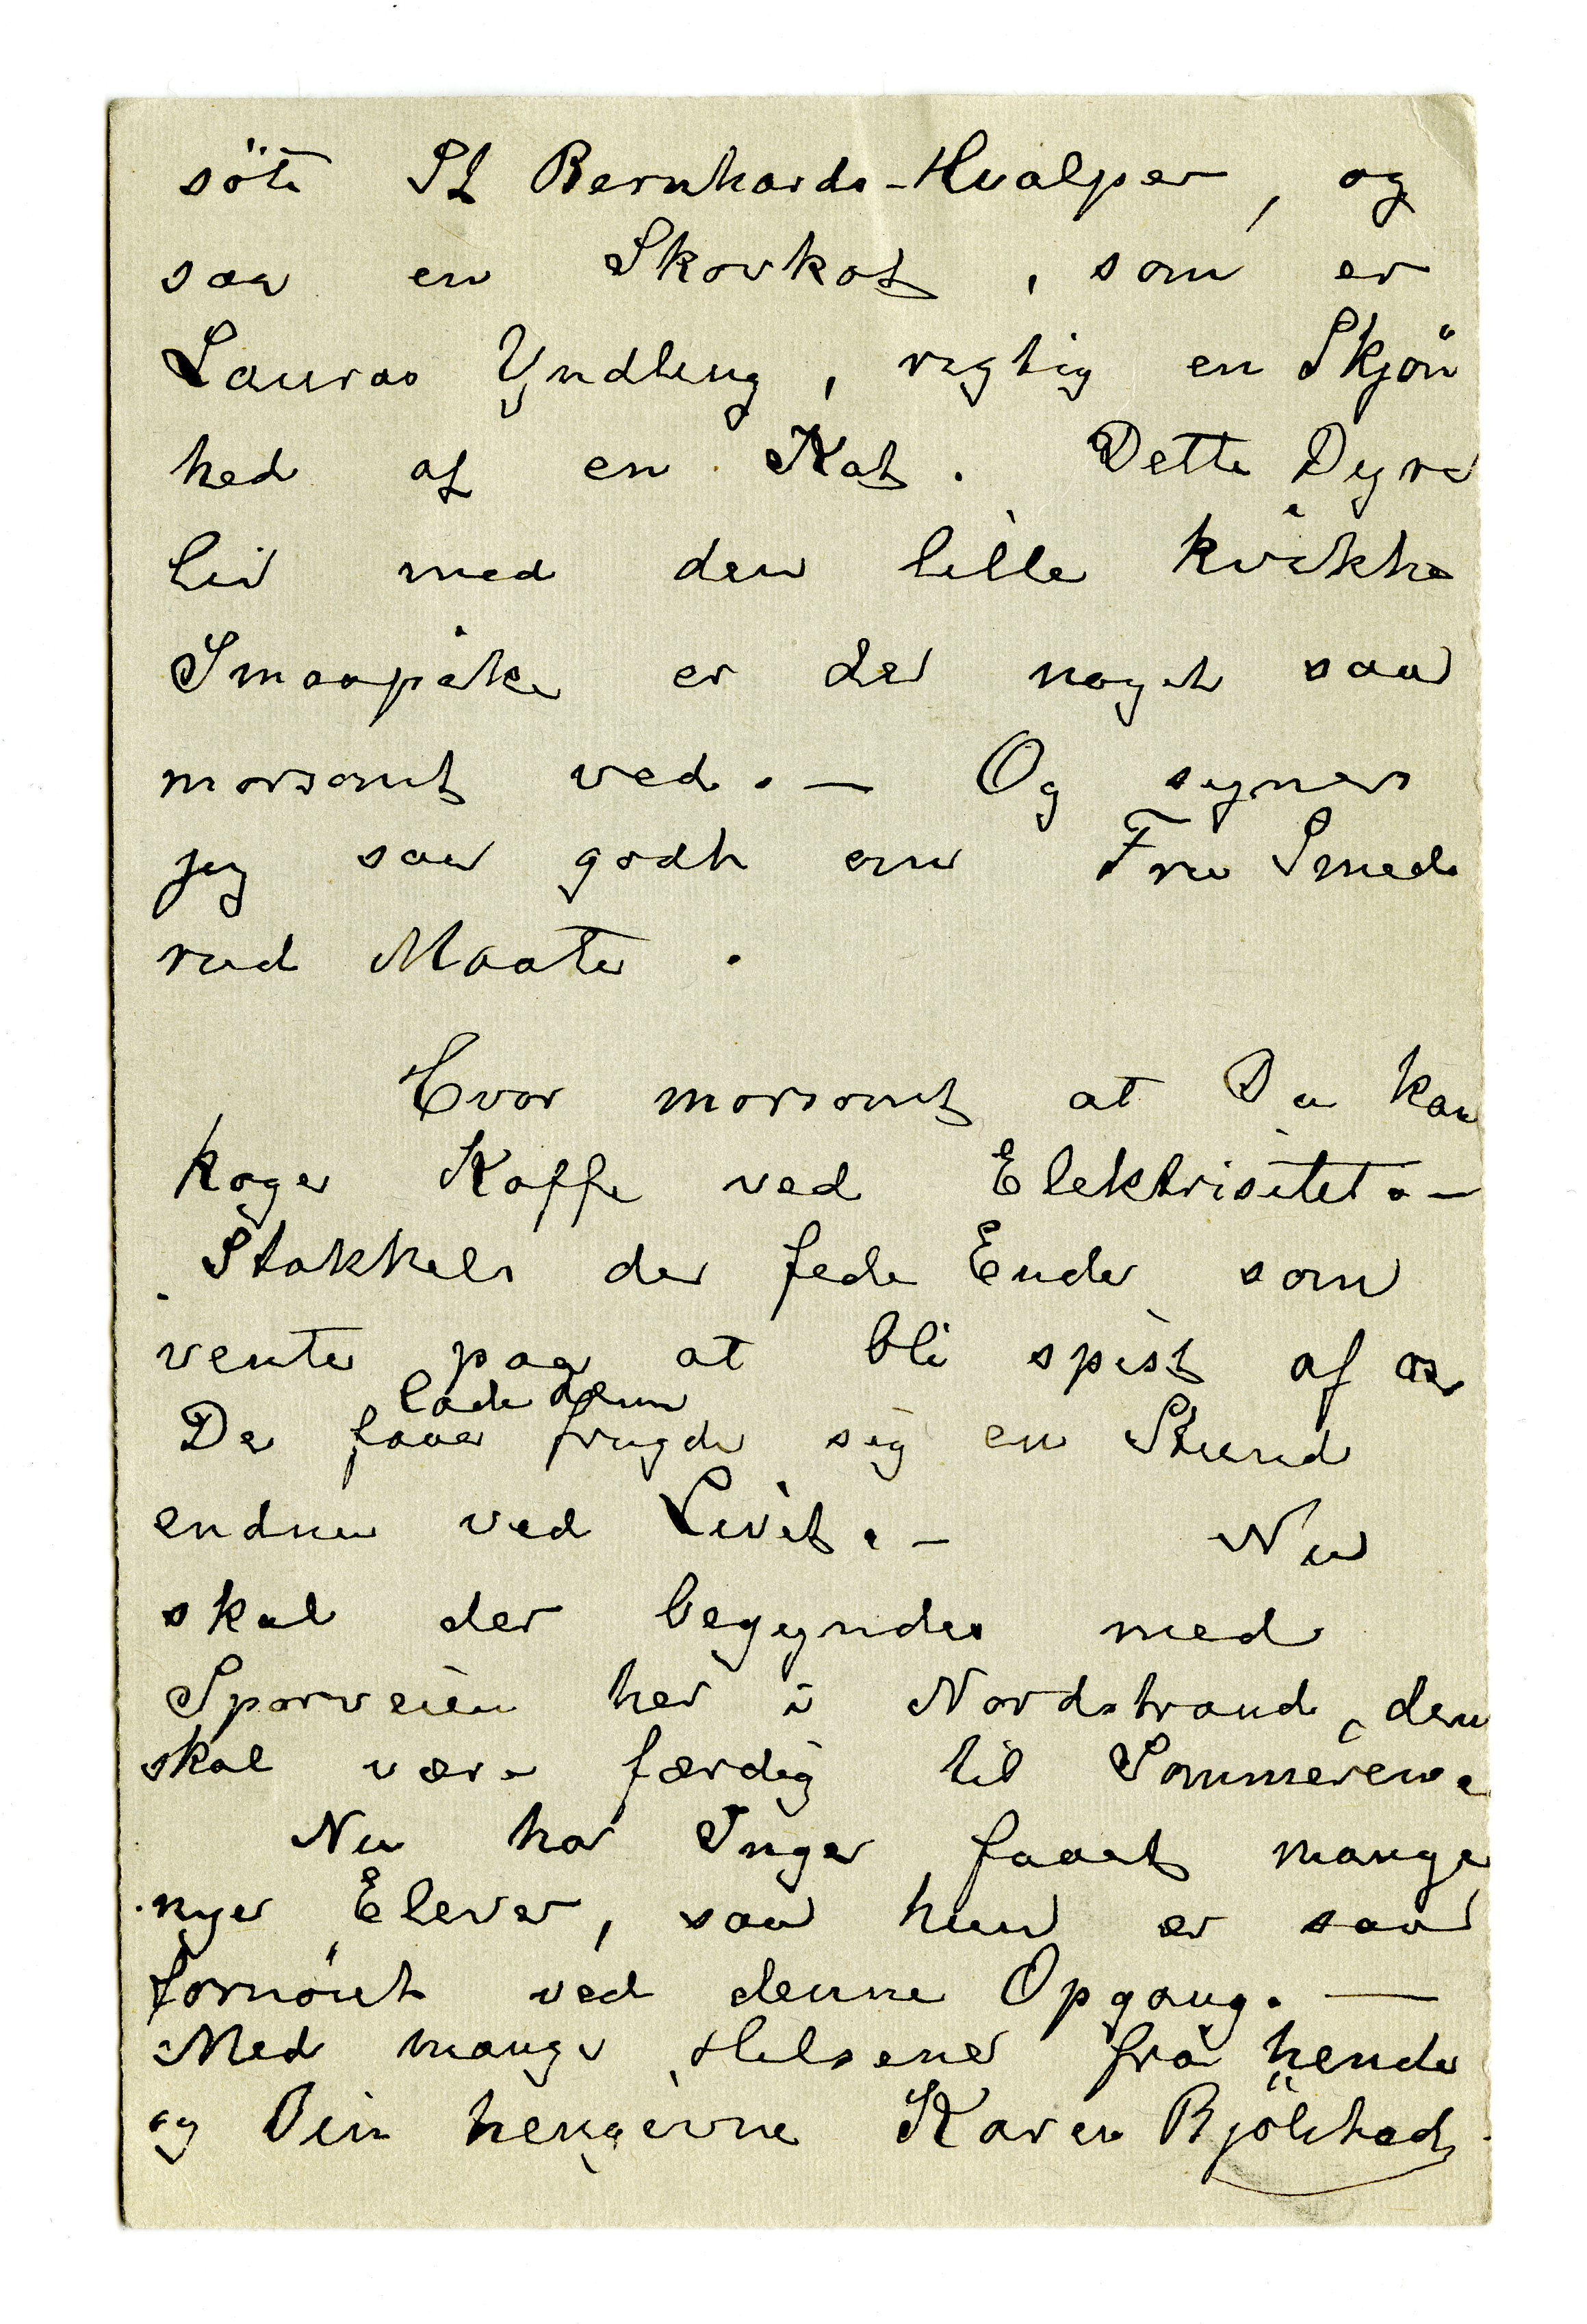 söte St Bernhards-Hvalper, og
saa en Skovkat, som er
Lauras Yndling, rigtig en Skjön
hed af en Kat. Dette Dyre
liv med den lille kvikke
Smaapike er der noget saa
morsomt ved. — Og synes
jeg saa godt om Fru Smeds
rud Maate.
Hvor morsomt at Du kan
koge Kaffe ved Elektrisitet. —
Stakkels de fede Ender som
vente paa at bli spist af os
lade dem
De faaer fryde sig en Stund
endnu ved Livet. — Nu
skal der begyndes med
Sporveien her i Nordstrand, den
skal være færdig til Sommeren.
Nu har Inger faaet mange
nye Elever, saa hun er saa
fornöiet ved denne Opgang. —
Med mange Hilsener fra hende
og Din hengivne Karen Bjölstad